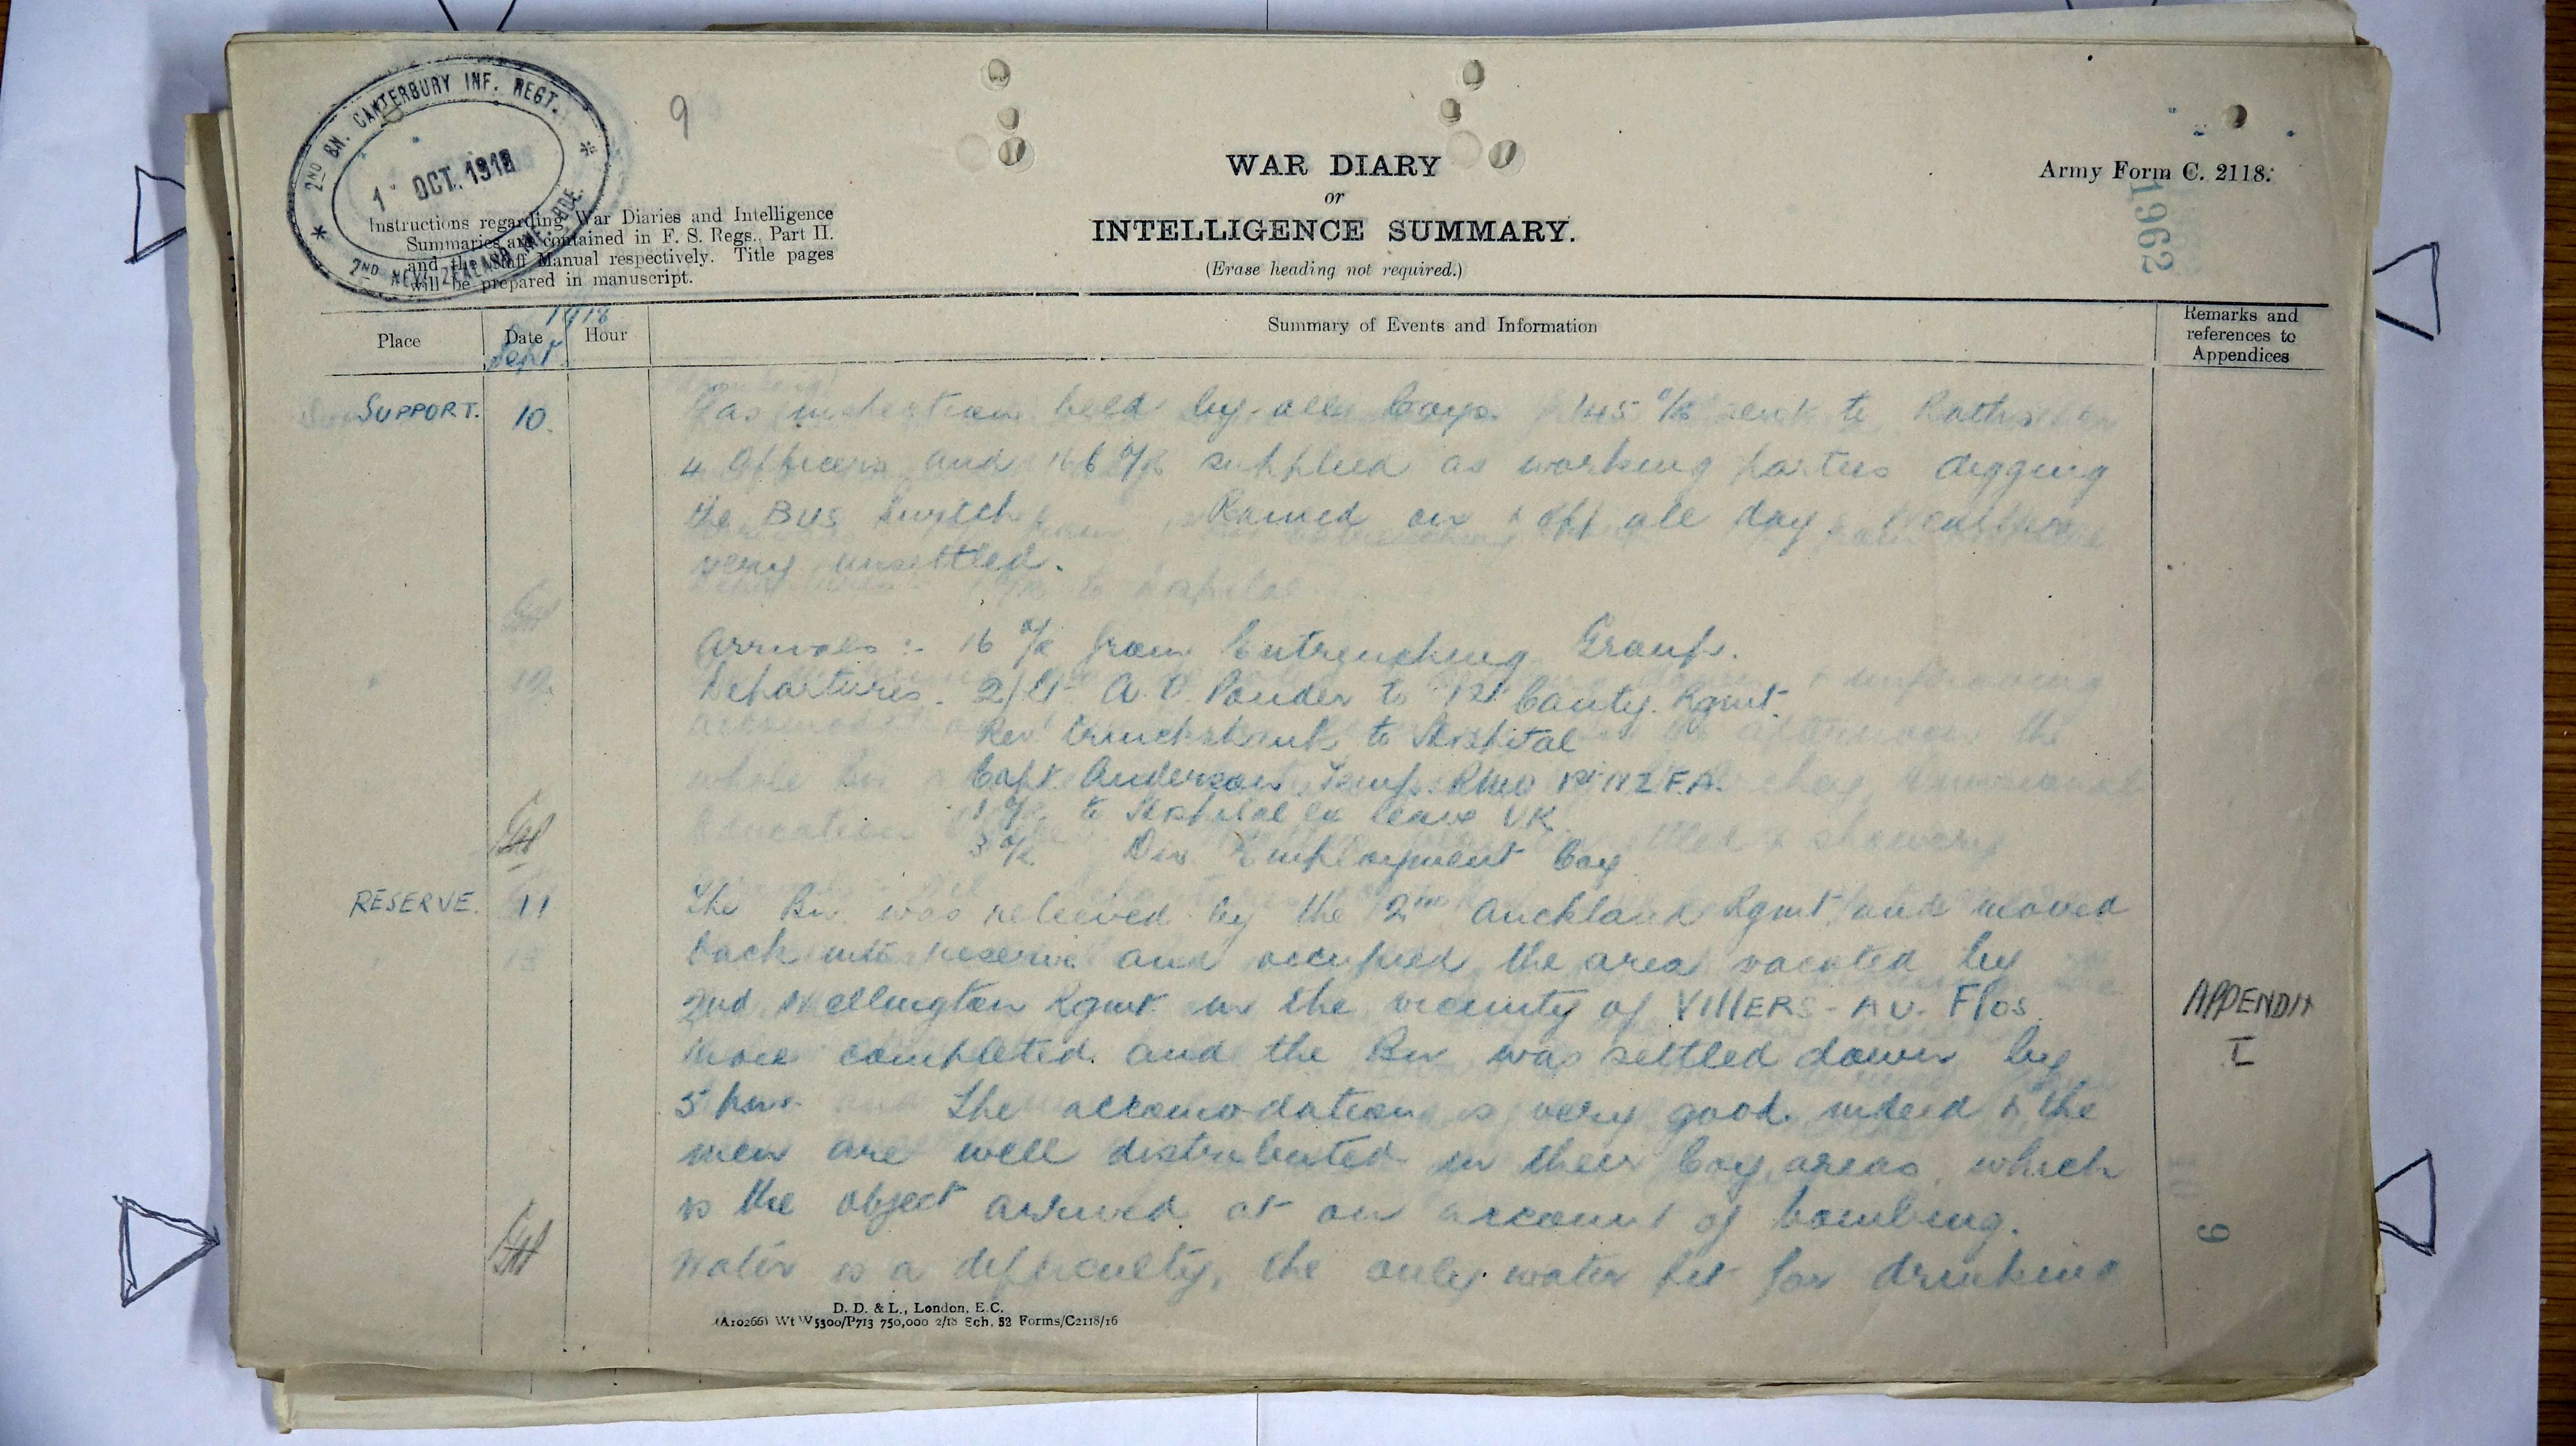 2ND BN. CANTERBURY INF. REGT.
1 OCT. 1918
2ND NEW ZEALAND INF. BDE.
9
Instructions regarding War Diaries and Intelligence
Summaries are contained in F. S. Regs., Part II.
and the Staff Manual respectively. Title pages
will be prepared in manuscript.
WAR DIARY
or
INTELLIGENCE SUMMARY.
(Erase heading not required.)
Army Form C. 2118.
1962
Place
Date
1918
Sept.
Hour
Summary of Events and Information
Remarks and
references to
Appendices
SUPPORT.
10.
Gas inspection held by all Coys. 145 O/R sent to Baths
4 Officers and 166 O/R supplied as working parties digging
the BUS Switch. Rained on & off all day. Weather
very unsettled.
Arrivals :- 16 O/R from Entrenching Group.
Departures. 2/Lt A. V. Ponder to 1st Canty. Rgmt.
Rev Cruickshank to Hospital
Capt Anderson Temp. RMO 1st NZFA.
1 O/R to Hospital ex leave UK
3 O/R Div Employment Coy
RESERVE.
11
The Bn. was relieved by the 2nd Auckland Rgmt and moved
back into reserve and occupied the area vacated by
2nd Wellington Rgmt in the vicinity of VIllERS-AU-FlOS.
Move completed and the Bn was settled down by
5 pm. The accomodation is very good indeed & the
men are well distributed in their Coy areas, which
is the object arrived at on account of bombing.
Water is a difficulty, the only water fit for drinking
APPENDIX
I
9
D. D. & L., London, E.C.
(A10266) Wt W5300/P713 750,000 2/18 Sch. 52 Forms/C2118/16